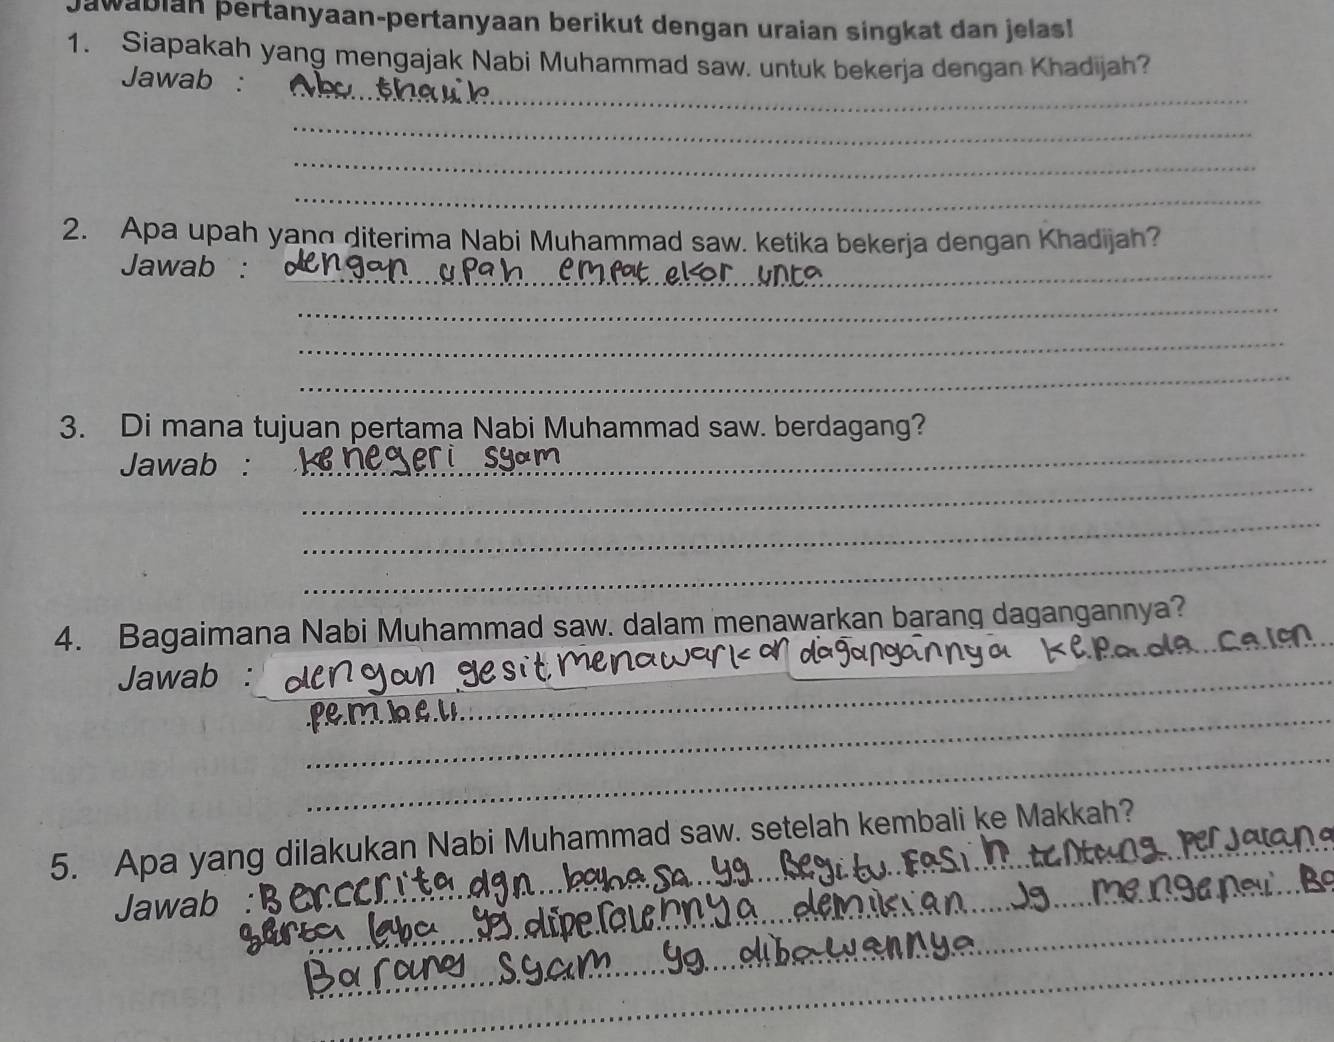 Jawablah pertanyaan-pertanyaan berikut dengan uraian singkat dan jelas!
1. Siapakah yang mengajak Nabi Muhammad saw. untuk bekerja dengan Khadijah?
Jawab : Abu thauib
2. Apa upah yang diterima Nabi Muhammad saw. ketika bekerja dengan Khadijah?
Jawab : dengan upah empat ekor unta
3. Di mana tujuan pertama Nabi Muhammad saw. berdagang?
Jawab : ke negeri syam
4. Bagaimana Nabi Muhammad saw. dalam menawarkan barang dagangannya?
Jawab : dengan gesit menawarkan dagangannya kepada calon
pembeli
5. Apa yang dilakukan Nabi Muhammad saw. setelah kembali ke Makkah?
Jawab : Berccrita dgn bahasa yg Begitu Fasih tentang perjalana
serta laba yg diperolehnya demikian Jg mengenai Ba
Barang syam yg dibawannya